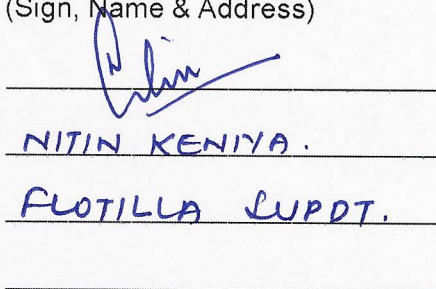 (Sign, Name & Address)
NITIN KENIYA.
FLOTILLA SUPDT.